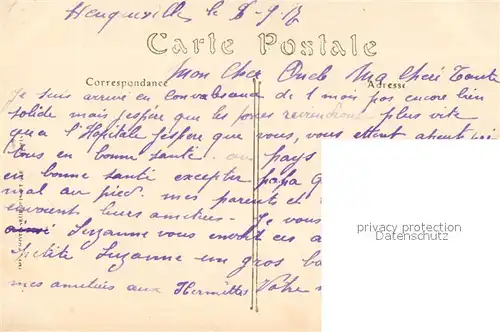 le 8-9-17
Carte Postale
Correspondance
Adresse
Mon Cher Oncle Ma Cheré Tante
Je suis arrivé en Convalesance de 1 mois pas encore bien
solide mais j'espére que les forces reviendront plus vite
qu'a l'Hopitale j'espére que vous, vous etent
tous en bonne santé. au pays
en bonne santé excepter papa
mal au pied. mes parent et
envoient leurs amitiés. Je vous
Suzanne vous envoit ces
petite Suzanne un gros
mes amitiées aux Hermittes Votre
privacy protection
Datenschutz